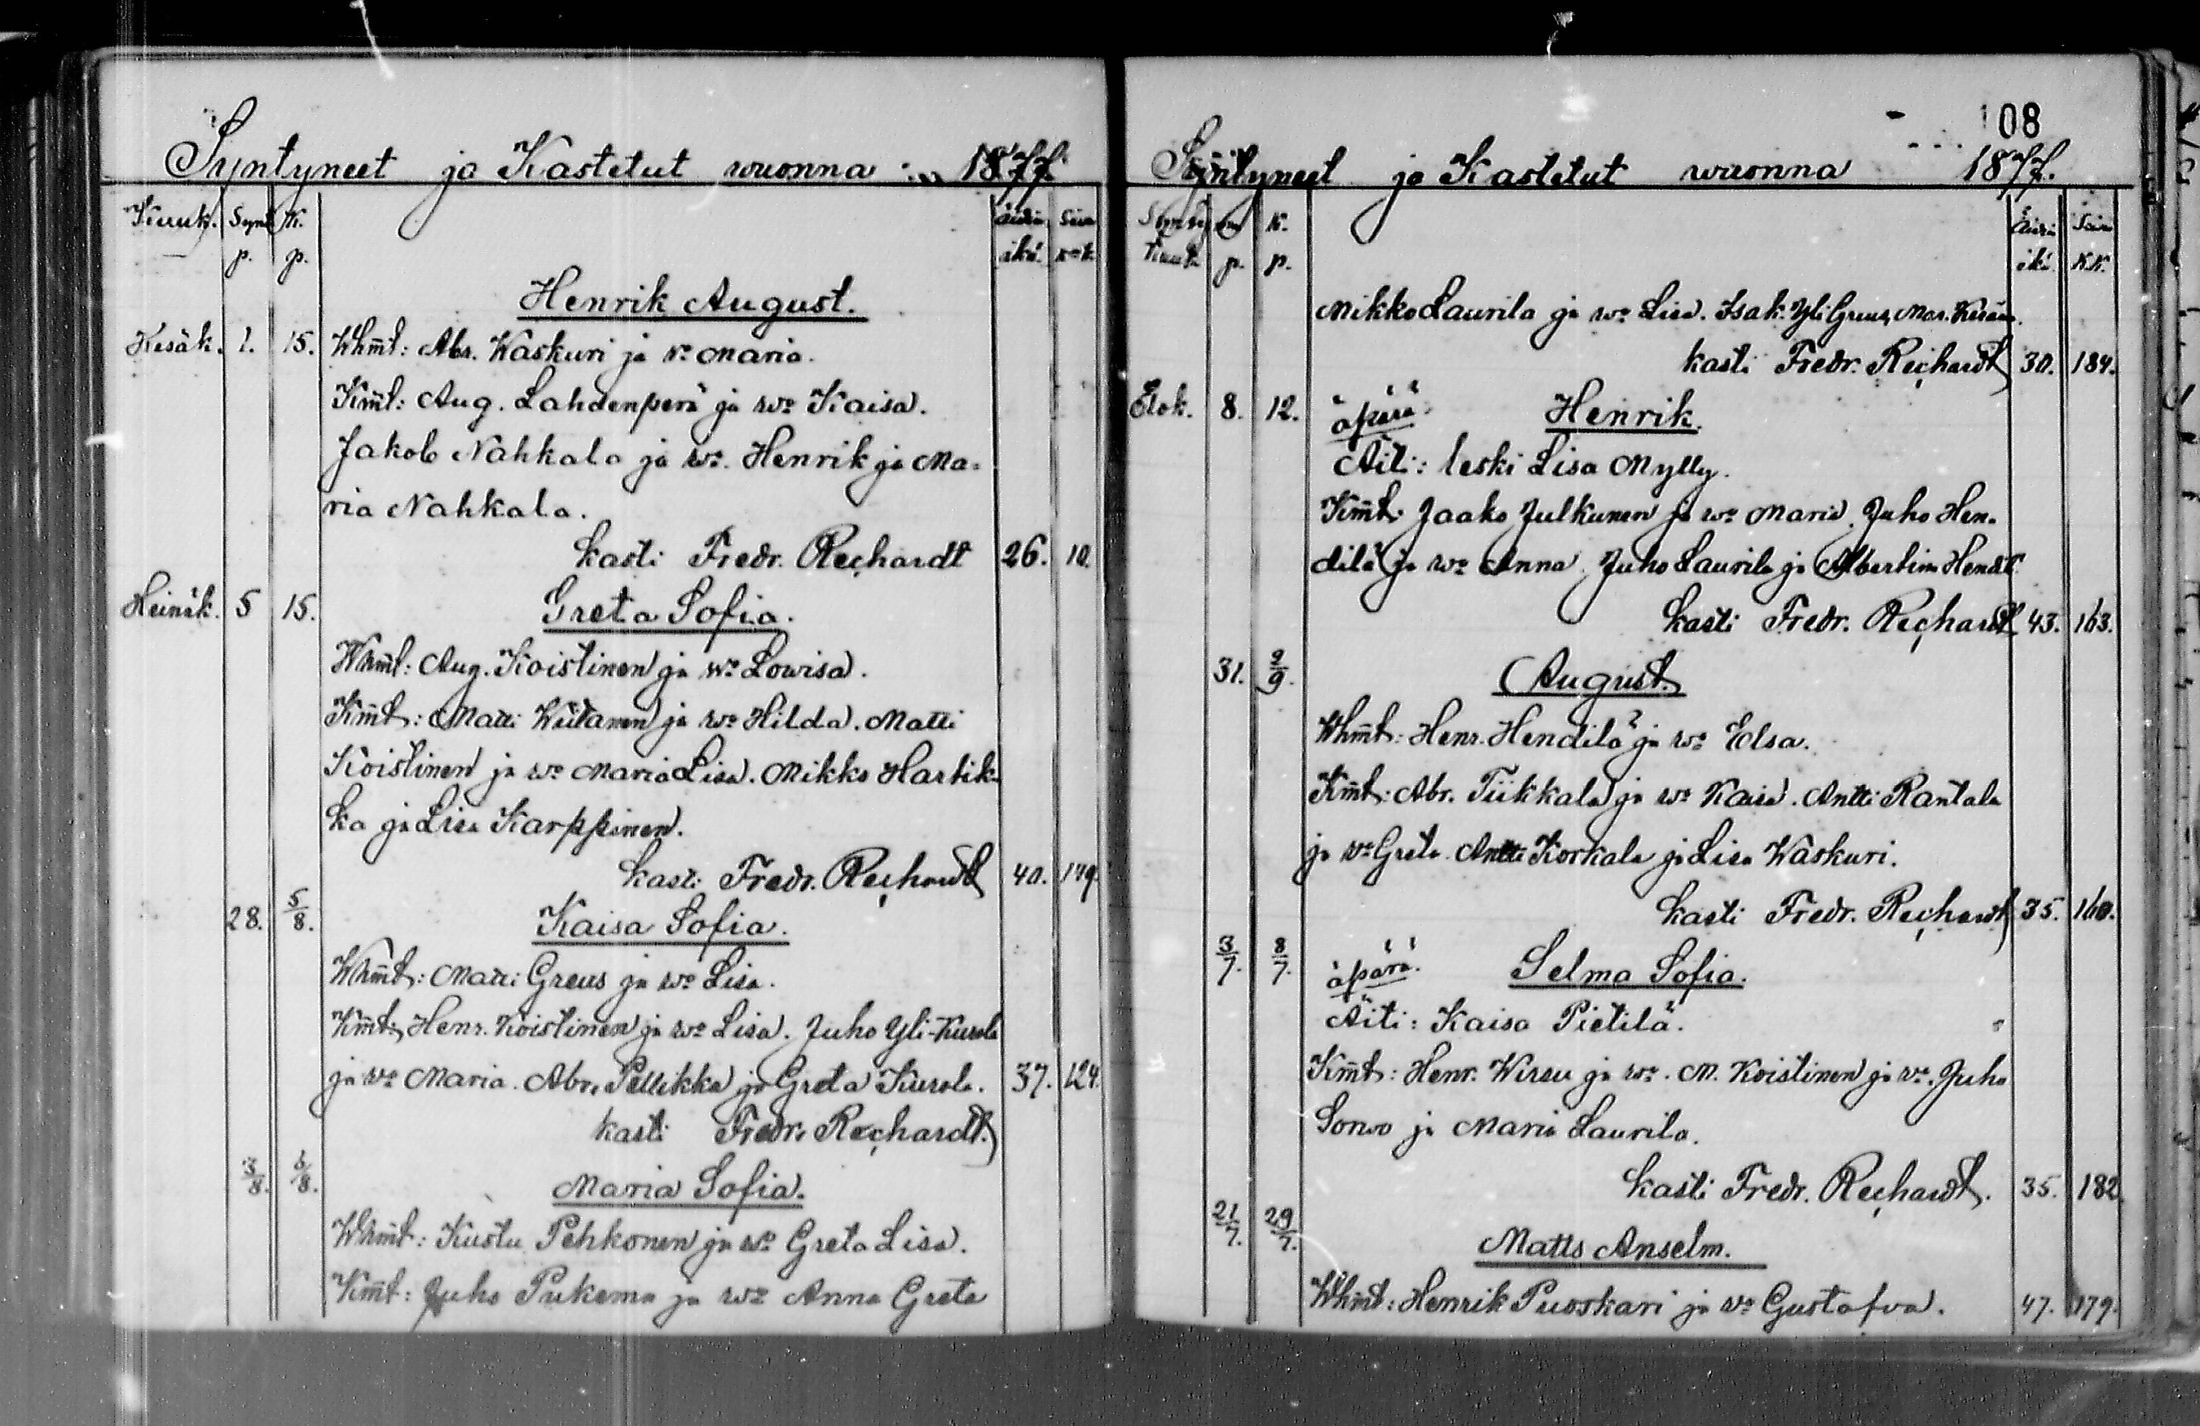 Syntyneet ja Kastetut wuonna 1877.
Kuuk. Synt. p. K. p. Äidin ikä. Siwu
Henrik August.
Kesäk. 1. 15. Whmt: Abr. Waskuri ja wo Maria.
Kmt: Aug. Lahdenperä ja wo Kaisa.
Jakob Nahkala ja wo. Henrik ja Ma-
ria Nahkala.
kasti Fredr. Rechardt 26. 10.
Heinäk. 5 15. Greta Sofia.
Whmt: Aug. Koistinen ja wo Lowisa.
Kmt: Matti Wiitanen ja wo Hilda. Matti
Koistinen ja wo Maria Lisa. Mikko Hartik-
ka ja Lisa Karppinen.
kasti Fredr. Rechardt 40. 149.
28. 5/8. Kaisa Sofia.
Whmt: Matti Greus ja wo Lisa.
Kmt: Henr. Koistinen ja wo Lisa. Juho Yli-Kurola
ja wo Maria. Abr. Pellikka ja Greta Kurola. 37. 124.
kasti Fredr. Rechardt.
3/8. 5/8. Maria Sofia.
Whmt: Kustu Pehkonen ja wo Greta Lisa.
Kmt: Juho Pukema ja wo Anna Greta
108
Syntyneet ja Kastetut wuonna 1877.
Kuuk. p. K. p. Äidin ikä Siwu K.K.
Mikko Laurila ja wo Lisa. Isak Yli Greus, Mar.
kasti Fredr. Rechardt 30. 184.
Elok. 8. 12. äpärä. Henrik.
Äiti: leski Lisa Mylly.
Kmt: Jaako Julkunen ja wo Maria. Juho Hen-
dilä ja wo Anna. Juho Laurila ja Albertina Hendil.
kasti Fredr. Rechardt 43. 163.
31. 2/9. August.
Whmt: Henr. Hendilä ja wo Elsa.
Kmt: Abr. Tiikkala ja wo Kaisa. Antti Rantala
ja wo Greta. Antti Korkala ja Lisa Waskuri.
kasti Fredr. Rechardt 35. 160.
3/7. 8/7. äpärä. Selma Sofia.
Äiti: Kaisa Pietilä.
Kmt: Henr. Wirsu ja wo. M. Koistinen ja wo. Juho
Sorwo ja Maria Laurila.
kasti Fredr. Rechardt. 35. 182
21/7. 29/7. Matts Anselm.
Whmt: Henrik Puoskari ja wo Gustafva. 47. 179.